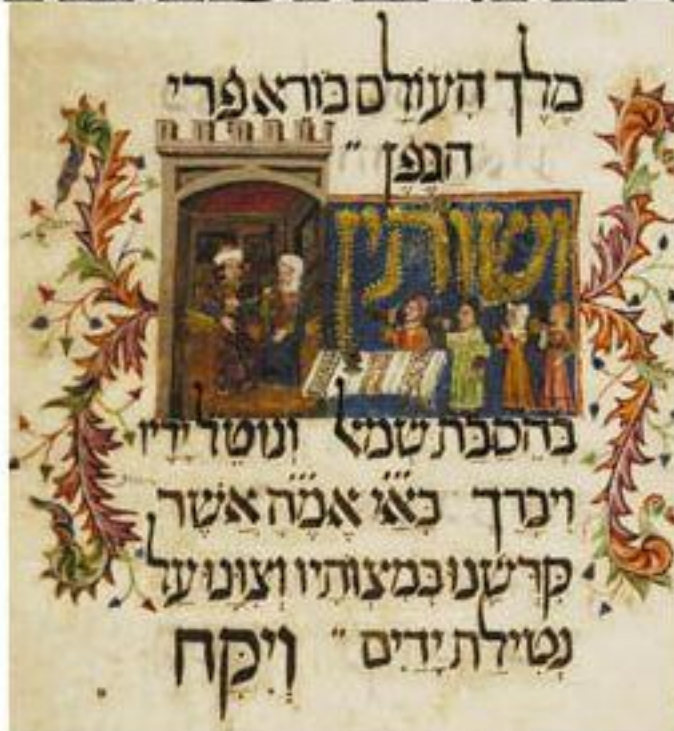 מֶלֶךְ הָעוֹלָם בּוֹרֵא פְּרִי
הַגָּפֶן ״
ושותין
בְּהַסִבַּת שמאל וְנוֹטֵל יָדָיו
וִיבָרֵךְ בָּאִ״י אֱמֶ״הָ אֲשֶׁר
קִדְּשָׁנוּ בְּמִצְוֹתָיו וְצִוָּנוּ עַל
נְטִילַת יָדַיִם ״ וְיִקַּח